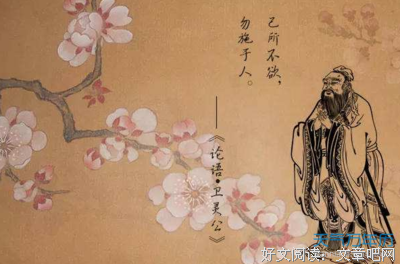 己所不欲，
勿施于人。
——《论语·卫灵公》
好文阅读：文章吧网